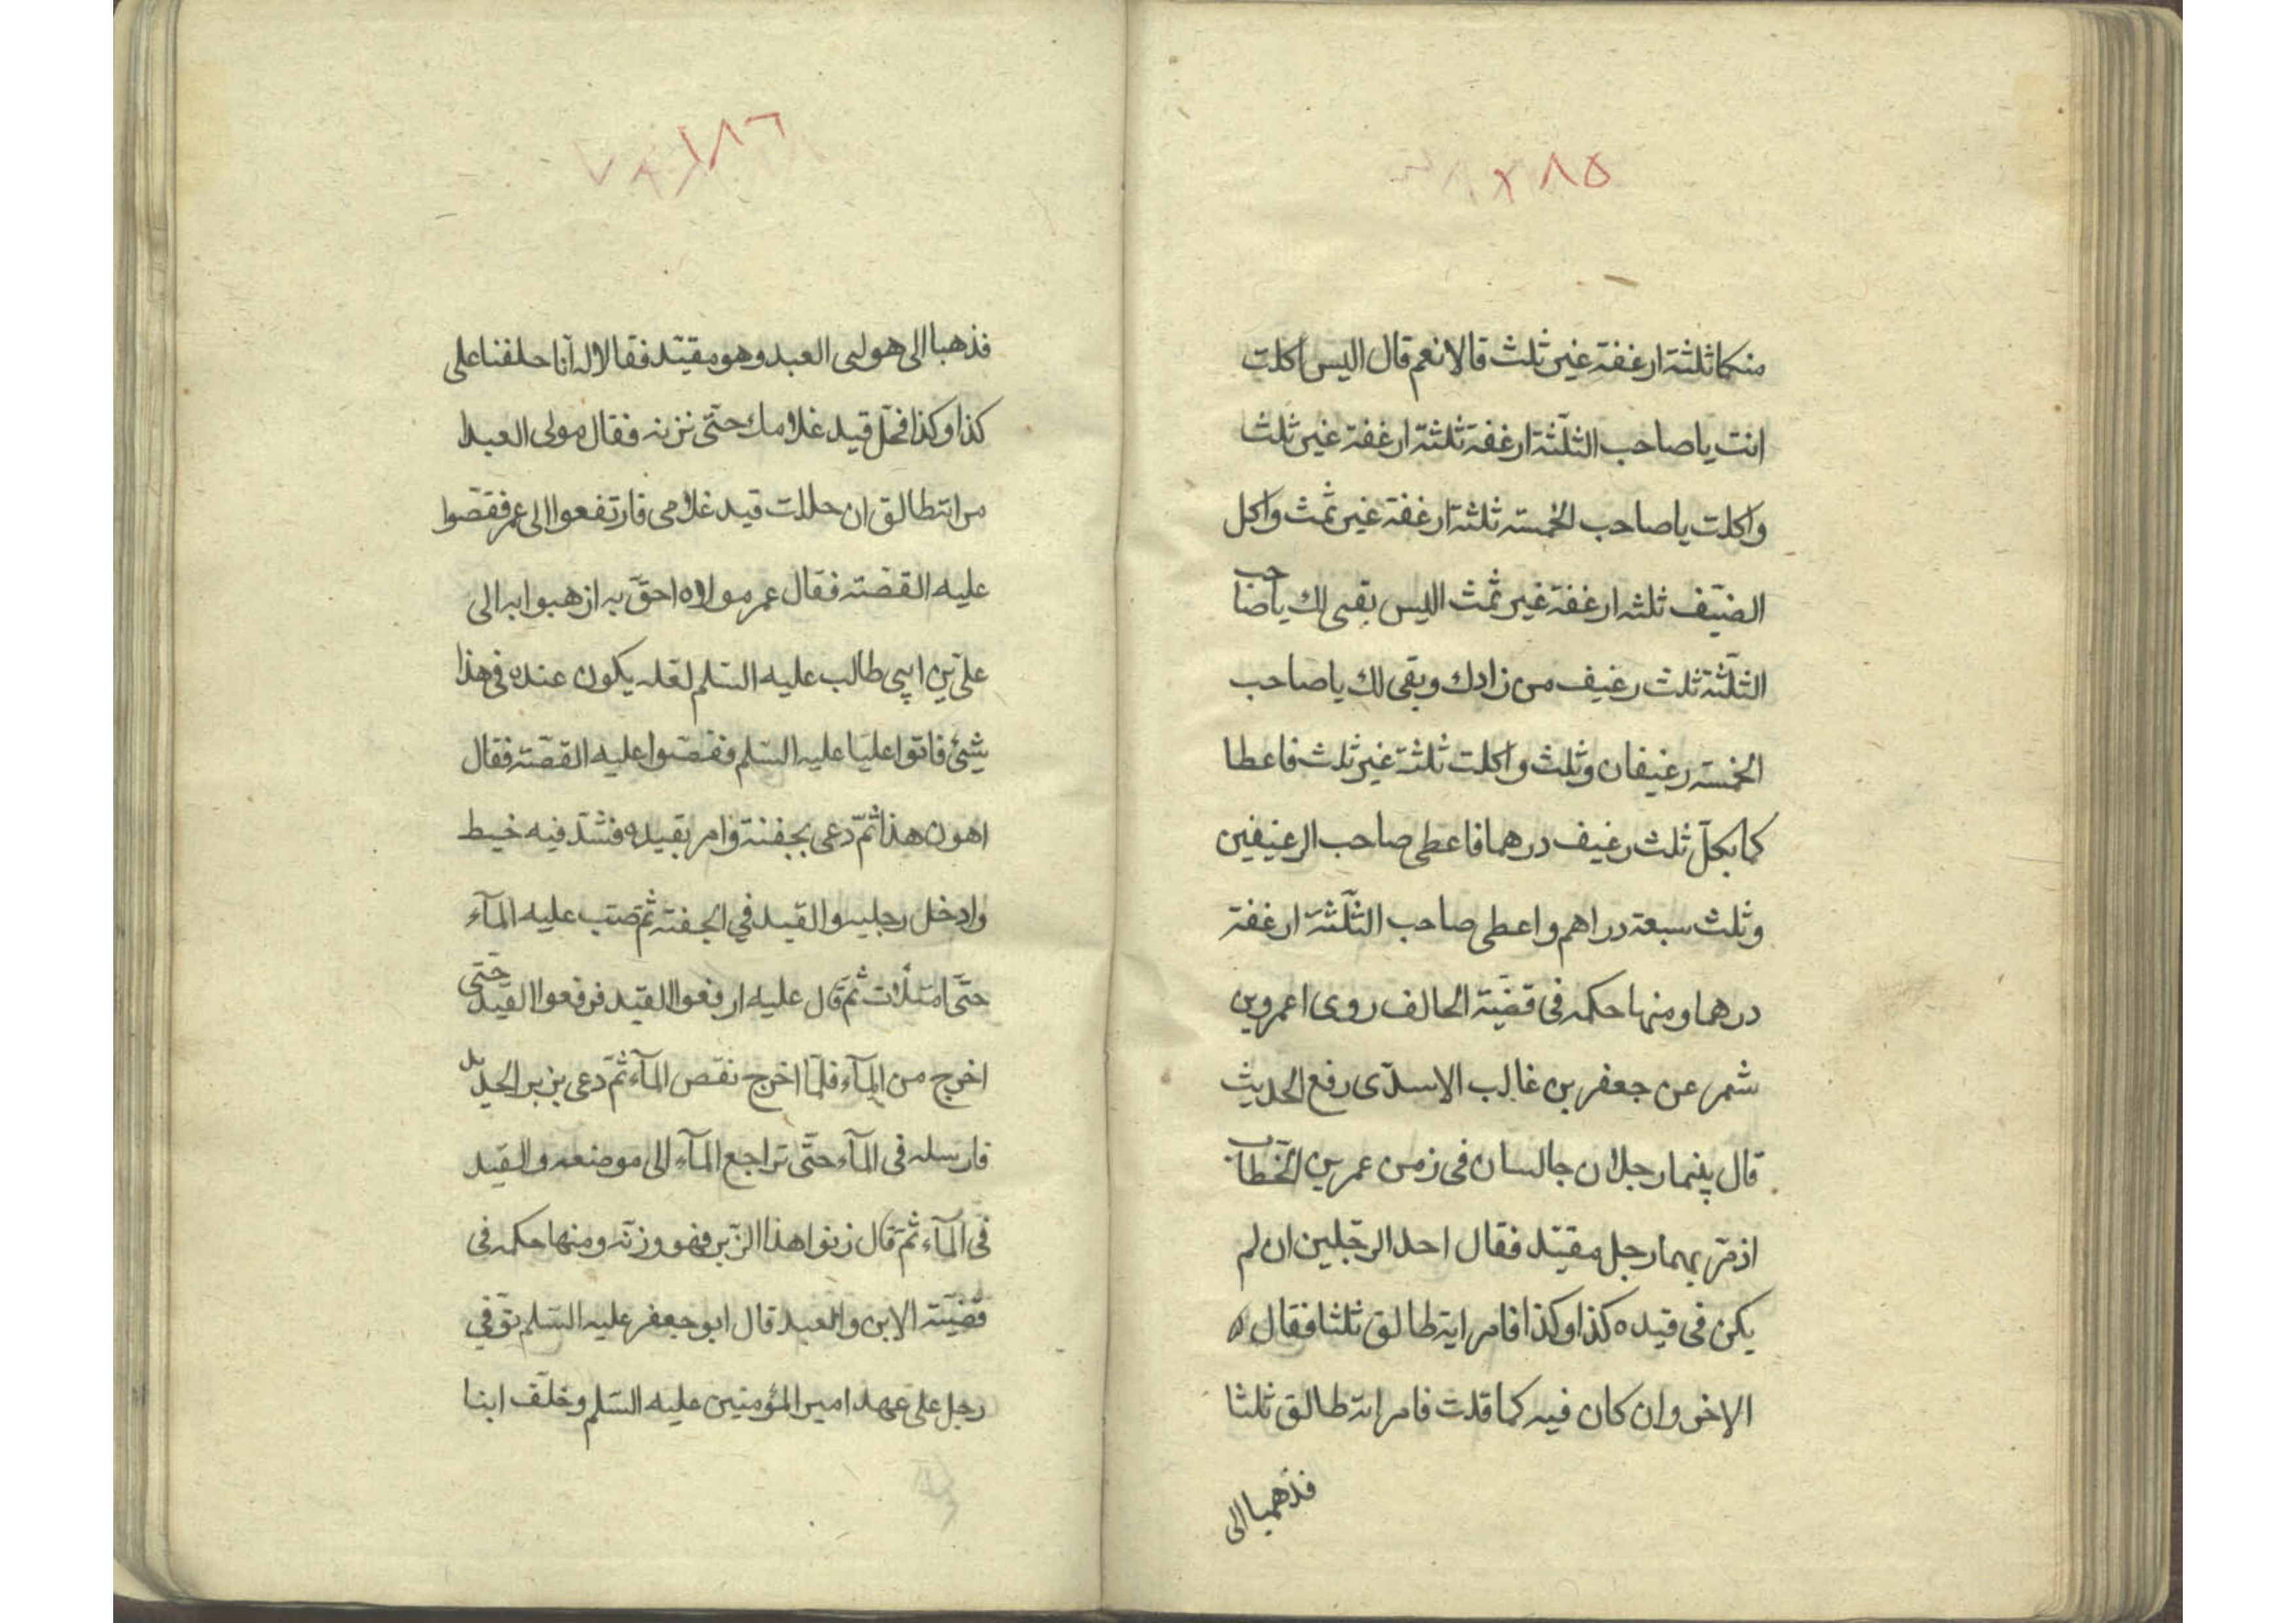 ١٨٥
منكما ثلثة ارغفة غير ثلث قالا نعم قال اليس اكلت
انت يا صاحب الثلثة ارغفة ثلثة ارغفة غير ثلث
واكلت يا صاحب الخمسة ثلثة ارغفة غير ثلث واكل
الضيف ثلثه ارغفة غير ثلث اليس بقى لك يا صاحب
الثلثة ثلث رغيف من زادك وبقى لك يا صاحب
الخمسة رغيفان وثلث واكلت ثلثة غير ثلث فاعطا
كما بكل ثلث رغيف درهما فاعطى صاحب الرغيفين
وثلث سبعة دراهم واعطى صاحب الثلثة ارغفة
درهما ومنها حكمه فى قضية الحالف روى اعمرو بن
شمر عن جعفر بن غالب الاسدى رفع الحديث
قال بينما رجلان جالسان فى زمن عمر بن الخطاب
اذ مر بهما رجل مقيد فقال احد الرجلين ان لم
يكن فى قيده كذا وكذا فامراية طالق ثلثا فقال
الاخر وان كان فيه كما قلت فامراته طالق ثلثا
فذهبا الى
١٨٦
فذهبا الى هولى العبد وهو مقيد فقالا له انا حلفنا على
كذا وكذا فحل قيد غلامك حتى نزنه فقال مولى العبدا
مراته طالق ان حللت قيد غلامى فارتفعوا الى عمر فقصوا
عليه القصة فقال عمر مولاه احق به ازهبوا به الى
على بن ابي طالب عليه السلم لعله يكون عنده فى هذا
شيئ فاتوا عليا عليه السلم فقصوا عليه القصة فقال
اهون هذا ثم دعى بجفنة وامر بقيده فشد فيه خيط
وادخل رجليه والقيد في الجفنة ثم صب عليه المآء
حتى امتلات ثم قال عليه ارفعوا القيد فرفعوا القيد حتى
اخرج من المآء فلما اخرج نقص المآء ثم دعى بزبر الحديد
فارسله فى المآء حتى تراجع المآء الى موضعه والقيد
فى المآء ثم قال زنوا هذا الزبر فهو وزنه ومنها حكمه فى
قضية الابن والعبد قال ابو جعفر عليه السلم توفي
رجل على عهد امير المؤمنين عليه السلم وخلف ابنا